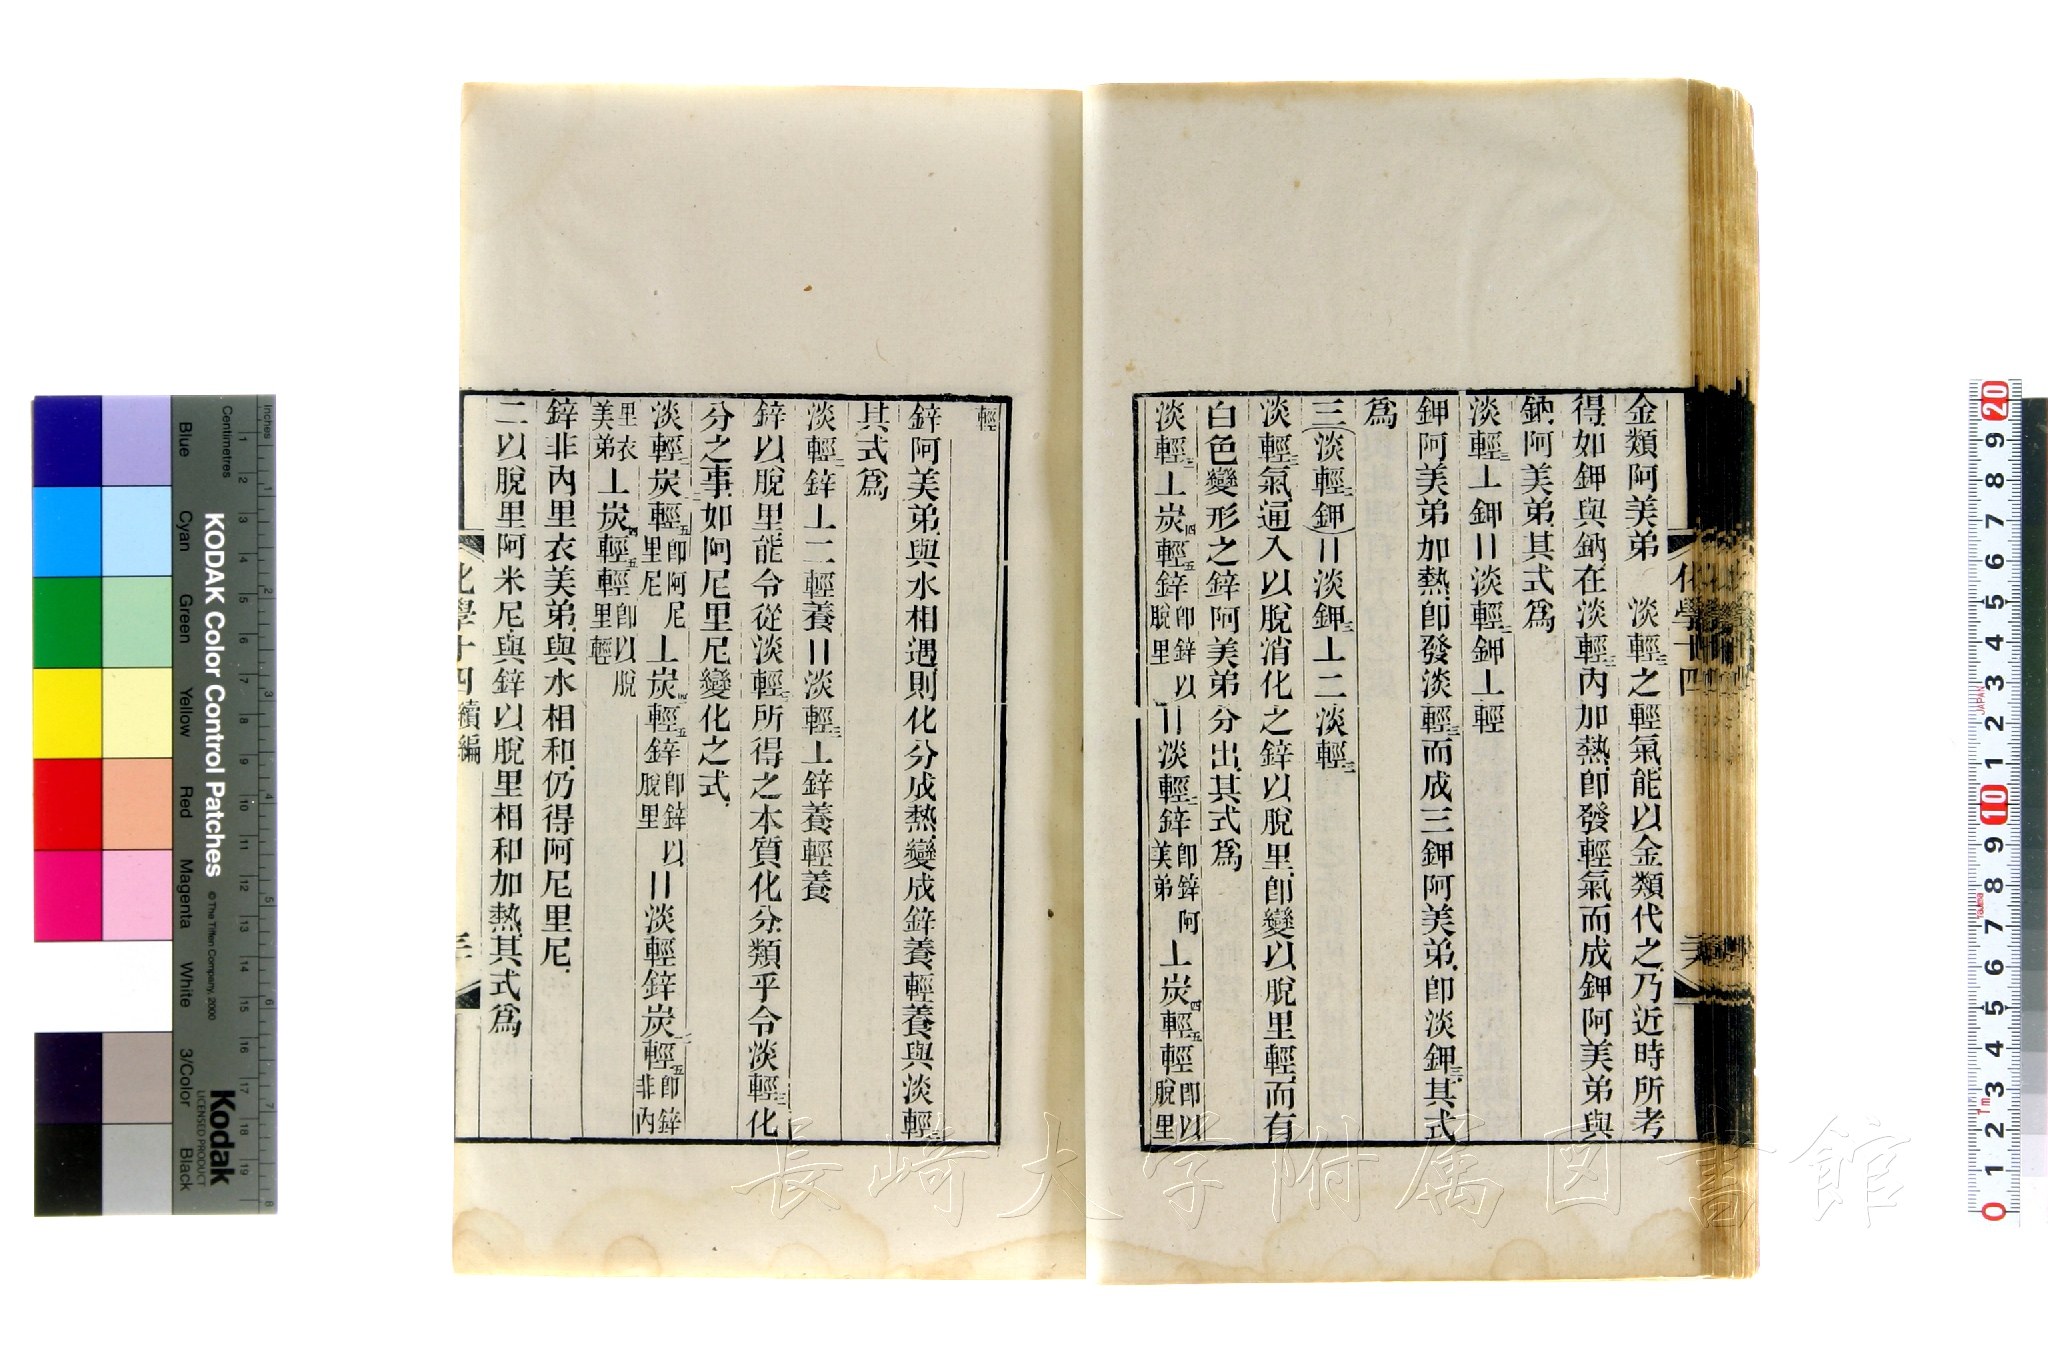 金類阿美弟　淡輕三之輕氣能以金類代之乃近時所考
得如鉀與鈉在淡輕三內加熱卽發輕氣而成鉀阿美弟與
鈉阿美弟其式爲
淡輕三丄鉀〢淡輕二鉀丄輕
鉀阿美弟加熱卽發淡輕三而成三鉀阿美弟卽淡鉀三其式
爲
三(淡輕二鉀)〢淡鉀三丄二淡輕三
淡輕三氣通入以脫消化之鋅以脫里卽變以脫里輕而有
白色變形之鋅阿美弟分出其式爲
淡輕三丄炭四輕五鋅卽鋅以脫里〢淡輕二鋅卽鋅阿美弟丄炭四輕五輕卽以脫里
輕
鋅阿美弟與水相遇則化分成熱變成鋅養輕養與淡輕三
其式爲
淡輕二鋅丄二輕養〢淡輕三丄鋅養輕養
鋅以脫里能令從淡輕三所得之本質化分類乎令淡輕三化
分之事如阿尼里尼變化之式
淡輕二炭二輕五卽阿尼里尼丄炭四輕五鋅卽鋅以脫里〢淡輕鋅炭二輕五卽鋅非內
里衣美弟丄炭四輕五輕卽以脫里輕
鋅非內里衣美弟與水相和仍得阿尼里尼
二以脫里阿米尼與鋅以脫里相和加熱其式爲
化學十四
化學十四續編
KODAK Color Control Patches
© The Tiffen Company, 2000
Kodak
LICENSED PRODUCT
Inches
Centimetres
Blue
Cyan
Green
Yellow
Red
Magenta
White
3/Color
Black
JAPAN
長崎大学附属図書館